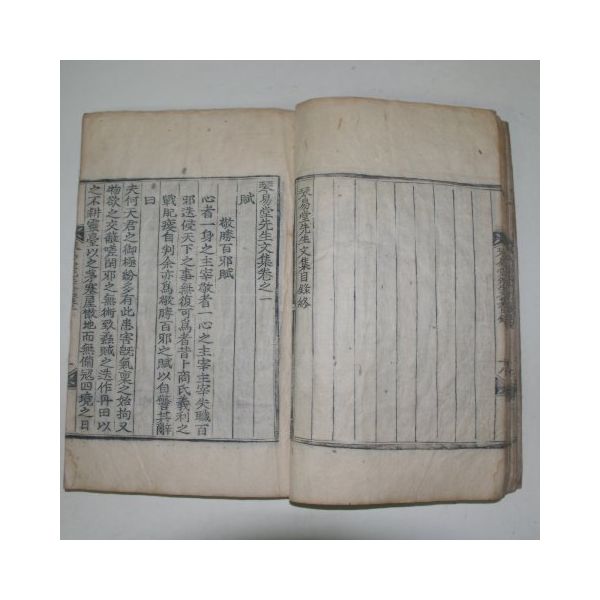 琴易堂先生文集目錄終
琴易堂先生文集卷之一
賦
敬勝百邪賦
心者一身之主宰敬者一心之主宰主宰失職百
邪迭侵天下之事無復可爲者昔卜商氏義利之
戰肥癯自判余亦爲敬勝百邪之賦以自警其辭
曰
夫何天君之御極紛多有此患害旣氣稟之始拘又
物欲之交蔽嗟閑邪之無術致蟊賊之迭作丹田以
之不耕靈臺以之夢寒屋撤地而無備寇四境之日